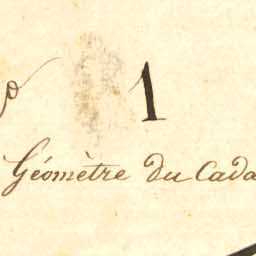 o 1
Géomètre du Cada